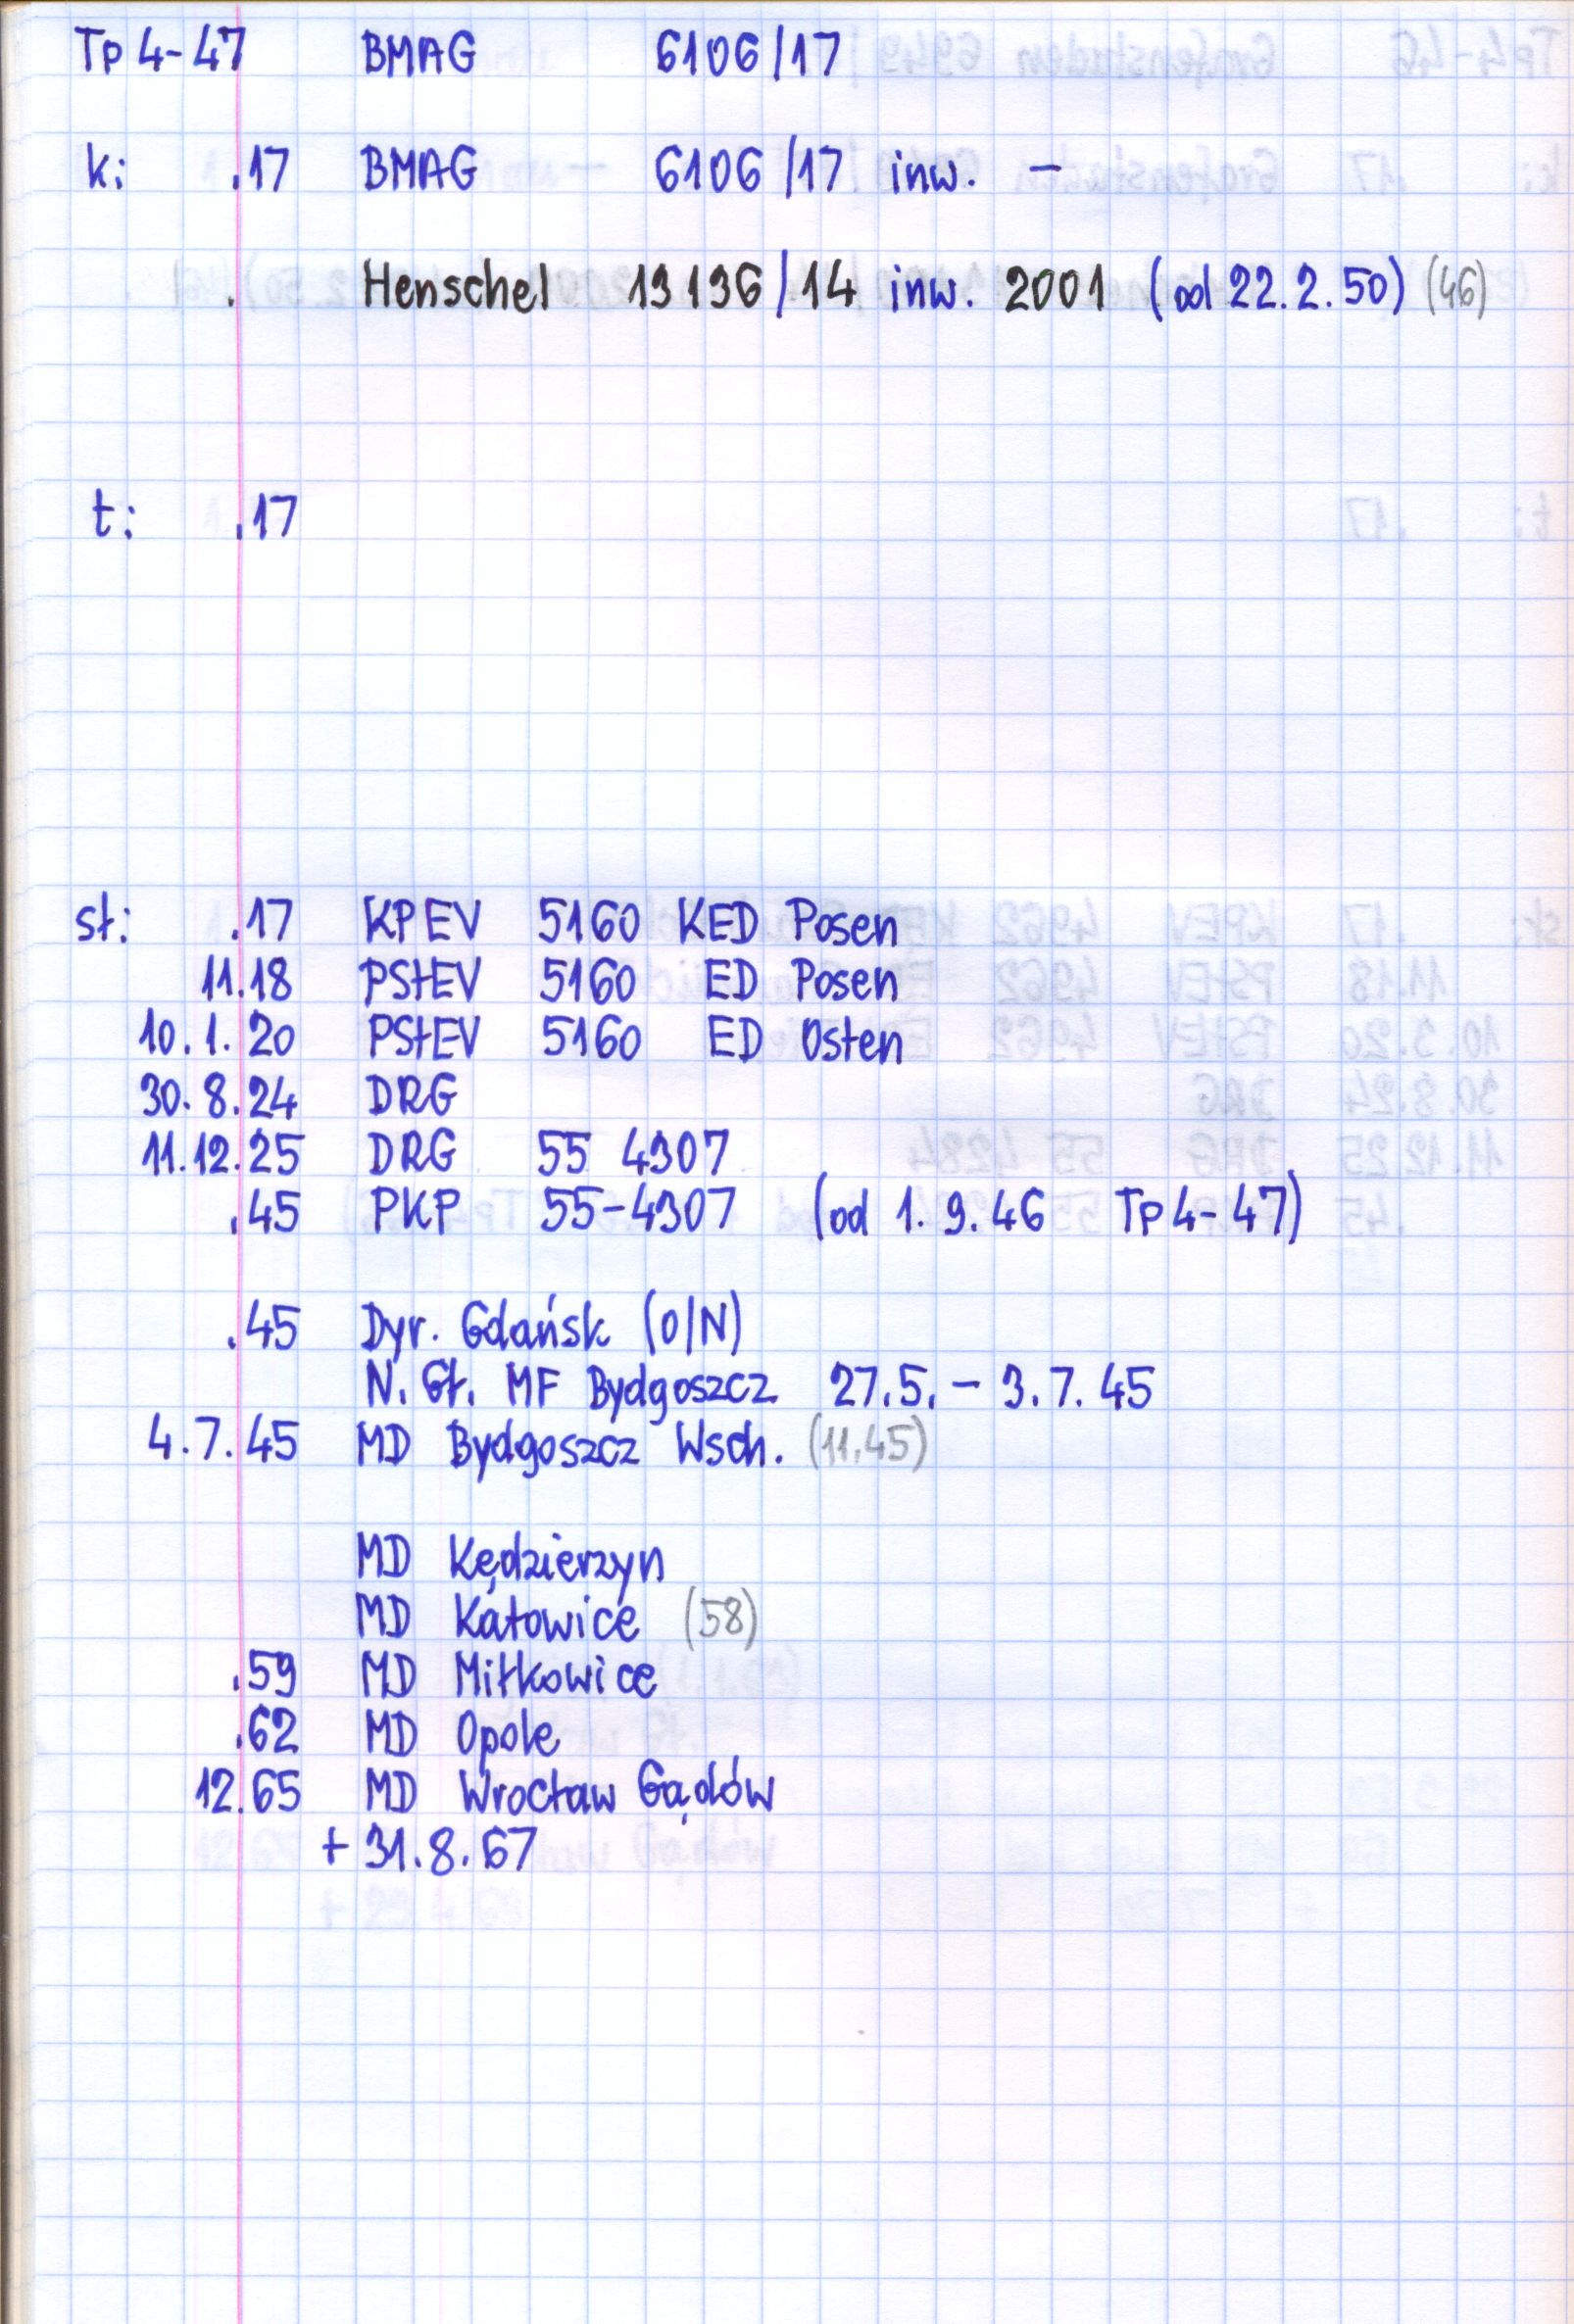 Tp 4-47 BMAG 6106/17
k: .17 BMAG 6106/17 inw. –
. Henschel 13136/14 inw. 2001 (od 22.2.50) (46)
t: .17
st: .17 KPEV 5160 KED Posen
11.18 PStEV 5160 ED Posen
10.1.20 PStEV 5160 ED Osten
30.8.24 DRG
11.12.25 DRG 55 4307
.45 PKP 55-4307 (od 1.9.46 Tp 4-47)
.45 Dyr. Gdańsk (O/N)
N. Gł. MF Bydgoszcz 27.5. – 3.7.45
4.7.45 MD Bydgoszcz Wsch. (11.45)
MD Kędzierzyn
MD Katowice (58)
.59 MD Miłkowice
.62 MD Opole
12.65 MD Wrocław Gądów
+ 31.8.67